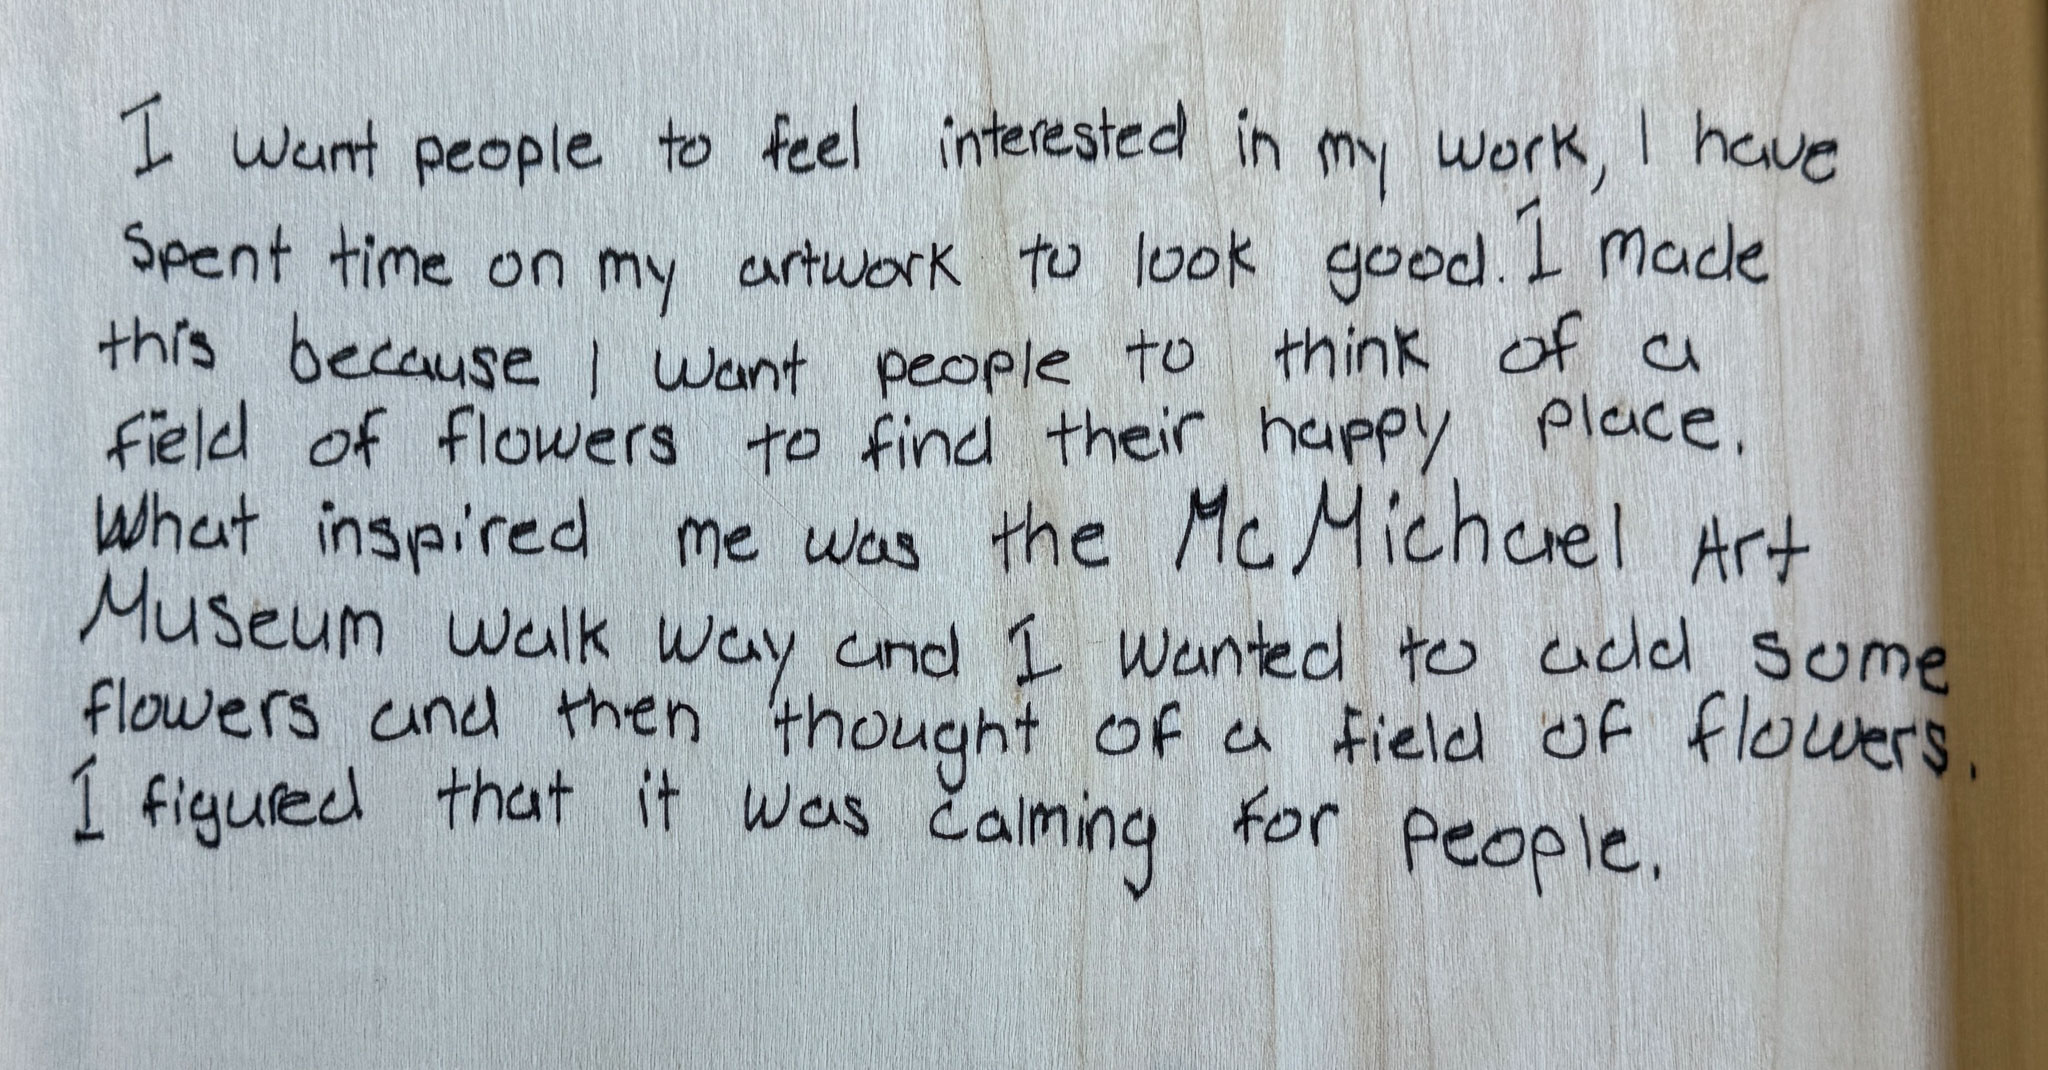 I want people to feel interested in my work, I have
spent time on my artwork to look good. I made
this because I want people to think of a
field of flowers to find their happy place.
What inspired me was the McMichael Art
Museum walk way and I wanted to add some
flowers and then thought of a field of flowers.
I figured that it was calming for people.